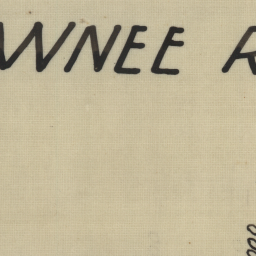 WNEE R